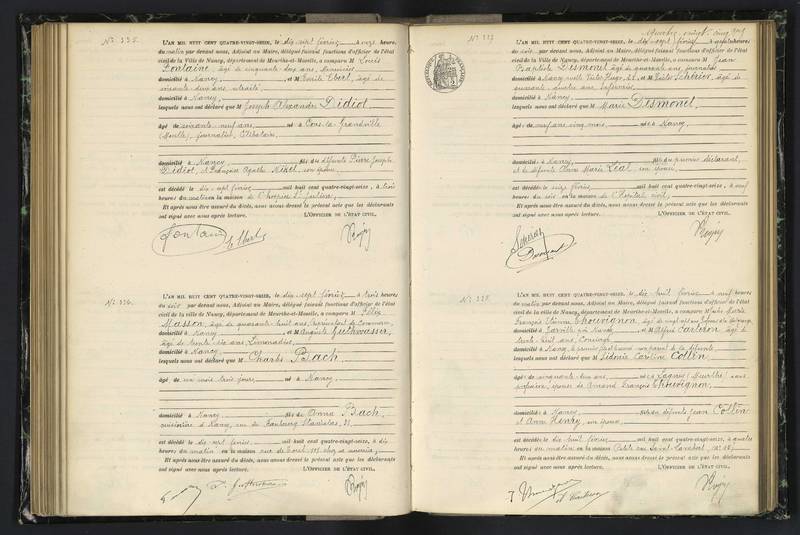 N° 335.
L'AN MIL HUIT CENT QUATRE-VINGT-SEIZE, le dix sept février à onze heures
du matin par devant nous, Adjoint au Maire, délégué faisant fonctions d'officier de l'état
civil de la Ville de Nancy, département de Meurthe-et-Moselle, a comparu M Louis
Fontaine, âgé de cinquante
domicilié à Nancy, et M Emile Ebert, âgé de
soixante deux ans, retraité,
domicilié à Nancy,
lesquels nous ont déclaré que M Joseph Alexandre Didiot,
âgé de soixante neuf ans, né à Cons la Grandville
(Moselle), journalier, célibataire,
domicilié à Nancy, fils de défunts Pierre Joseph
Didiot, et Françoise Agathe son épouse,
est décédé le dix sept février mil huit cent quatre-vingt-seize, à trois
heures du matin en la maison de l'hospice St Julien.
Et après nous être assuré du décès, nous avons dressé le présent acte que les déclarants
ont signé avec nous après lecture. L'OFFICIER DE L'ÉTAT CIVIL,
Fontaine
N° 336.
L'AN MIL HUIT CENT QUATRE-VINGT-SEIZE, le dix sept février à trois heures
du soir par devant nous, Adjoint au Maire, délégué faisant fonctions d'officier de l'état
civil de la ville de Nancy, département de Meurthe-et-Moselle, a comparu M Félix
Masson, âgé de quarante huit ans, représentant de commerce,
domicilié à Nancy et M Auguste
âgé de trente six ans, limonadier,
domicilié à Nancy
lesquels nous ont déclaré que M Charles Bach
âgé de un mois trois jours, né à Nancy,
domicilié à Nancy, fils de Anna Bach,
cuisinière à Nancy, rue du faubourg Stanislas, 31,
est décédé le dix sept février mil huit cent quatre-vingt-seize, à dix
heures du matin en la maison rue de
Et après nous être assuré du décès, nous avons dressé le présent acte que les déclarants
ont signé avec nous après lecture. L'OFFICIER DE L'ÉTAT CIVIL,
N° 337
L'AN MIL HUIT CENT QUATRE-VINGT-SEIZE, le dix sept février à heures
du soir par devant nous, Adjoint au Maire, délégué faisant fonctions d'officier de l'état
civil de la Ville de Nancy, département de Meurthe-et-Moselle, a comparu M Jean
Baptiste Desmonel âgé de quarante ans, journalier
domicilié à Nancy, Victor Hugo, et M Victor Schérier, âgé de
quarante quatre ans infirmier,
domicilié à Nancy,
lesquels nous ont déclaré que M Marie Desmonel,
âgée de neuf ans cinq mois, née à Nancy,
domiciliée à Nancy, fille du premier déclarant,
et de défunte Anne Marie Léal, son épouse,
est décédée le seize février mil huit cent quatre-vingt-seize, à neuf
heures du soir en la maison de l'hôpital civil,
Et après nous être assuré du décès, nous avons dressé le présent acte que les déclarants
ont signé avec nous après lecture. L'OFFICIER DE L'ÉTAT CIVIL,
N° 338
L'AN MIL HUIT CENT QUATRE-VINGT-SEIZE, le dix huit février à neuf heures
du matin par devant nous, Adjoint au Maire, délégué faisant fonctions d'officier de l'état
civil de la ville de Nancy, département de Meurthe-et-Moselle, a comparu M Jules Marie
François Etienne Thouvignon, âgé de vingt
domicilié à Jarville près Nancy et M Alfred Carteron âgé de
trente huit ans, concierge
domicilié à Nancy,
lesquels nous ont déclaré que M Sidonie Caroline Collin
âgée de cinquante deux ans, née à Lagney (Meurthe) sans
profession, épouse de Amand François Thouvignon,
domiciliée à Nancy, fille de défunts Jean Collin
et Anne Henry, son épouse,
est décédée le dix huit février mil huit cent quatre-vingt-seize, à quatre
heures du matin en la maison
Et après nous être assuré du décès, nous avons dressé le présent acte que les déclarants
ont signé avec nous après lecture. L'OFFICIER DE L'ÉTAT CIVIL,